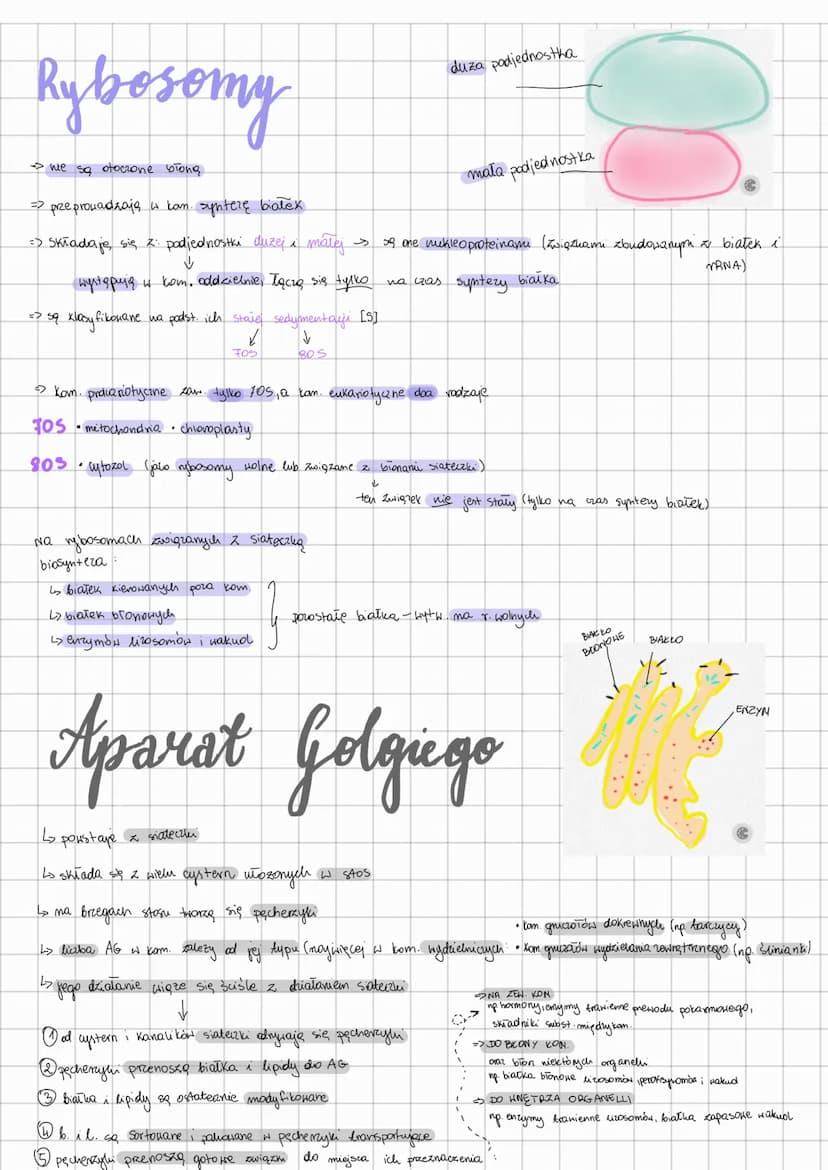 Rybosomy
duża podjednostka
mała podjednostka
→ nie są otoczone błoną
⇒ przeprowadzają w kom. syntezę białek
⇒ składają się z: podjednostki dużej i małej → są one nukleoproteinami (związkami zbudowanymi z białek i rRNA)
↓
występują w kom. oddzielnie, łączą się tylko na czas syntezy białka
⇒ są klasyfikowane na podst. ich stałej sedymentacji [S]
↙ ↓
70S 80S
⇒ kom. prokariotyczne zaw. tylko 70S, a kom. eukariotyczne dwa rodzaje
70S • mitochondria • chloroplasty
80S • cytozol (jako rybosomy wolne lub związane z błonami siateczki)
↓
ten związek nie jest stały (tylko na czas syntezy białek)
Na rybosomach związanych z siateczką
biosynteza:
↳ białek kierowanych poza kom.
↳ białek błonowych
↳ enzymów lizosomów i wakuol
pozostałe białka – wytw. na r. wolnych
BIAŁKO BŁONOWE
BIAŁKO
ENZYM
Aparat Golgiego
↳ powstaje z siateczki
↳ składa się z wielu cystern ułożonych w stos
↳ na brzegach stosu tworzą się pęcherzyki
↳ liczba AG w kom. zależy od jej typu (najwięcej w kom. wydzielniczych:
• kom. gruczołów dokrewnych (np. tarczycy)
• kom. gruczołów wydzielania zewnętrznego (np. ślinianki)
↳ jego działanie wiąże się ściśle z działaniem siateczki
↓
① od cystern i kanalików siateczki odrywają się pęcherzyki
② pęcherzyki przenoszą białka i lipidy do AG
③ białka i lipidy są ostatecznie modyfikowane
④ b. i l. są sortowane i pakowane w pęcherzyki transportujące
⑤ pęcherzyki przenoszą gotowe związki do miejsca ich przeznaczenia
⇒ NA ZEW. KOM
np hormony, enzymy trawienne przewodu pokarmowego,
składniki subst. międzykom.
⇒ DO BŁONY KOM.
oraz błon niektórych organelli
np. białka błonowe lizosomów, peroksysomów i wakuol
⇒ DO WNĘTRZA ORGANELLI
np. enzymy trawienne lizosomów, białka zapasowe wakuol